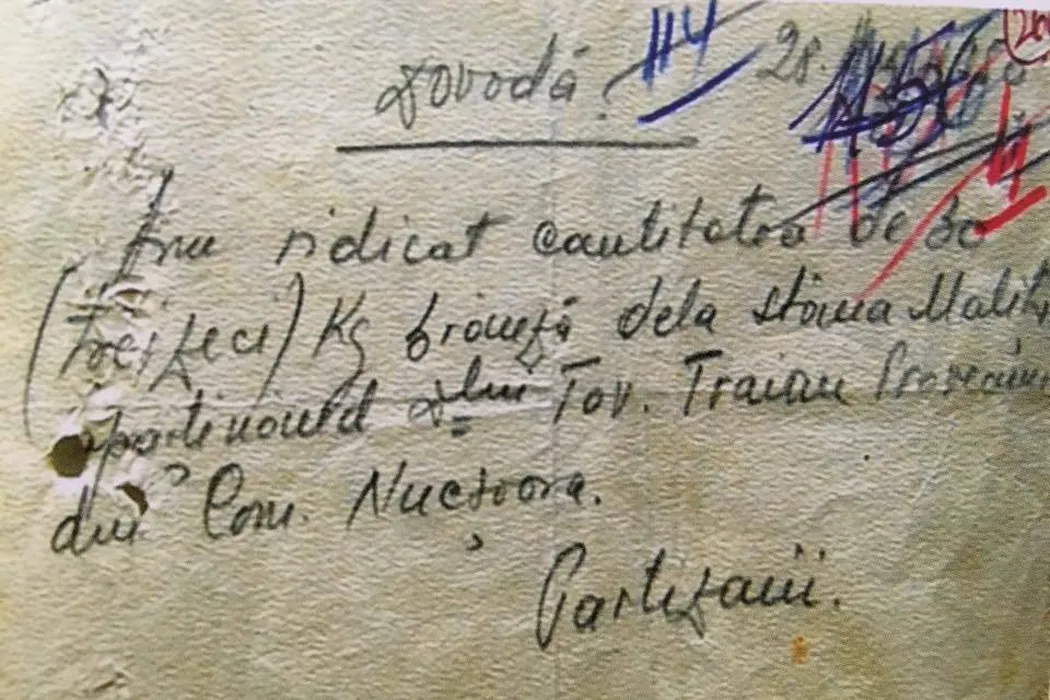 Dovodă. 114 28.
Am ridicat cantitatea de 30
(Treizeci) Kg brânză dela stâna
apartinând Dlui Tov. Traian
din Com. Nucșoara.
Partizanii.